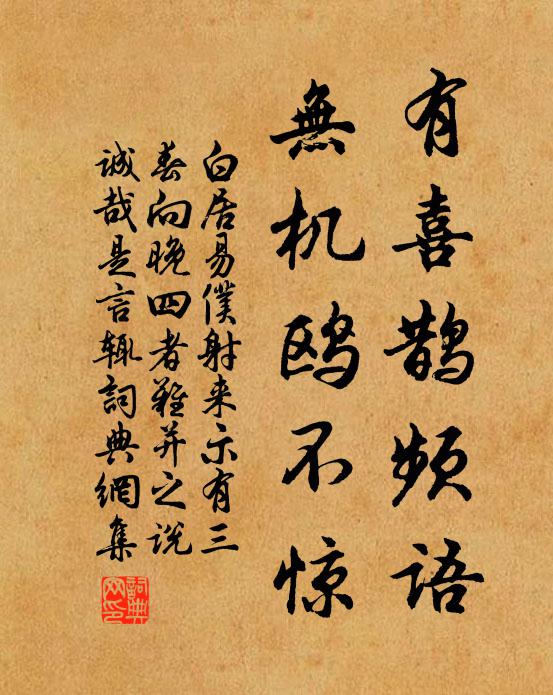 有喜鹊频语
無机鸥不惊
白居易僕射来示有三
春向晚四者難并之说
诚哉是言辄詞典網集
詞典网印